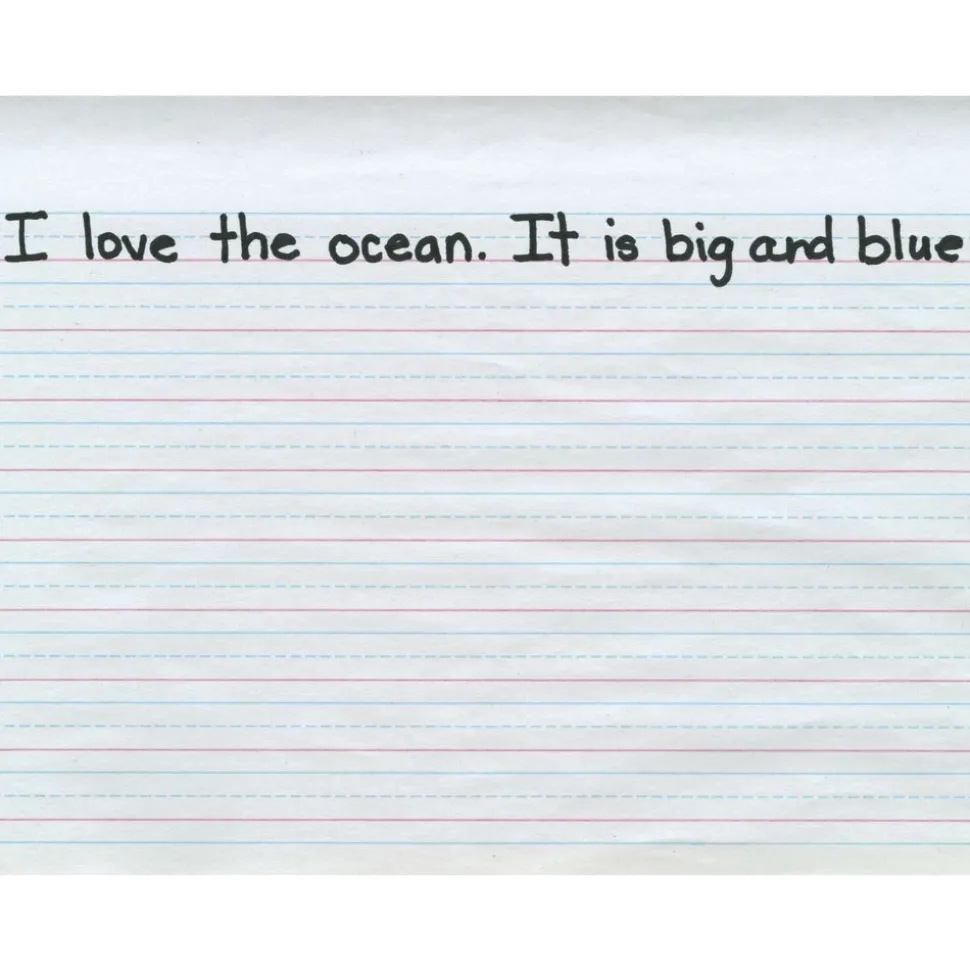 I love the ocean. It is big and blue